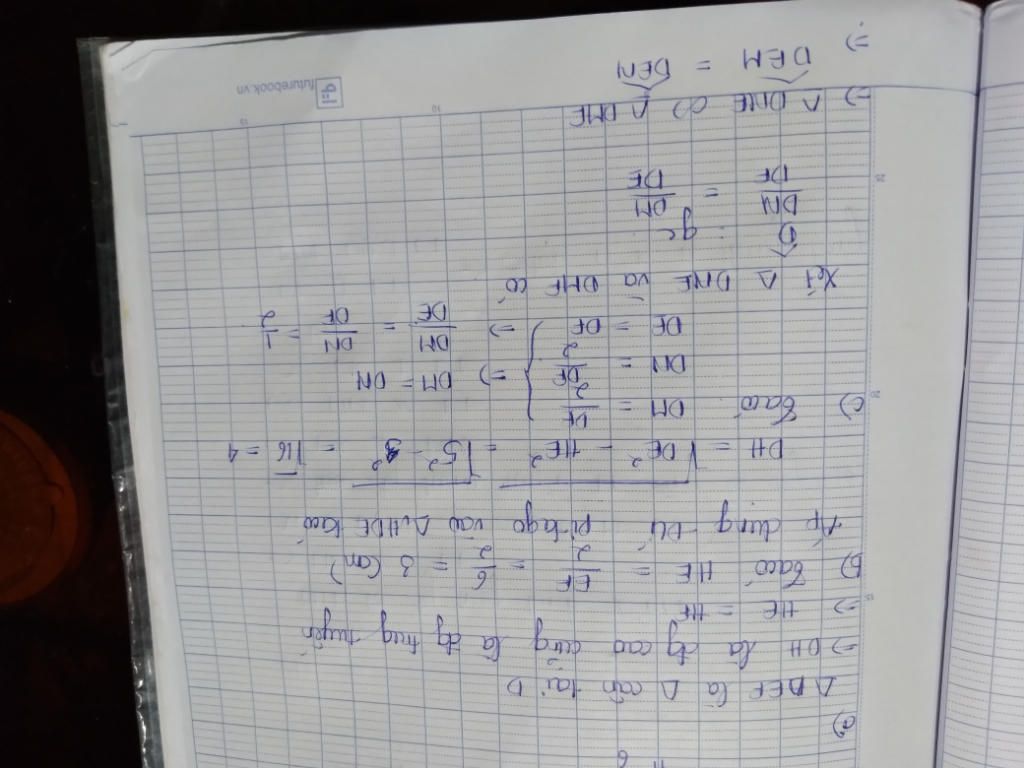 H 6
a)
Δ DEF là Δ cân tại D
=> DH là đg cao cũng là đg trung tuyến
=> HE = HF
b) Taco HE = EF/2 = 6/2 = 3 (cm)
Áp dụng ĐLí pitago vào Δ HDE taco
DH = √DE² - HE² = √5² - 3² = √16 = 4
c) Taco DM = DE/2
DN = DF/2 => DM = DN
DE = DF => DM/DE = DN/DF = 1/2
Xét Δ DNE và DMF có
D̂ : gc
DN/DF = DM/DE
=> Δ DNE ∽ Δ DMF
=> DEM = DEN
futurebook.vn